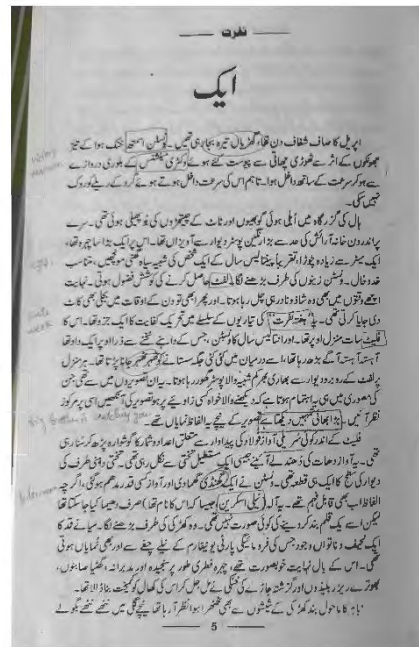 نفرت
ایک
اپریل کا صاف شفاف دن تھا، گھڑیال تیرہ بجا رہی تھیں۔ ونسٹن اسمتھ خنک ہوا کے تیز
جھونکوں کے اثر سے ٹھوڑی چھاتی سے پیوست کئے ہوئے وکٹری مینشنس کے بلوری دروازے
سے ہو کر سرعت کے ساتھ داخل ہوا۔ تاہم اس کی سرعت داخل ہوتے ہوئے گرد کے ریلے کو روک
نہیں سکی۔
ہال کی گزرگاہ میں اُبلی ہوئی گوبھیوں اور ٹاٹ کے چیتھڑوں کی بو پھیلی ہوئی تھی۔ سرے
پر اندرون خانہ آرائش کی حد سے بڑا رنگین پوسٹر دیوار سے آویزاں تھا۔ اس پر ایک بڑا سا چہرہ تھا،
ایک میٹر سے زیادہ چوڑا، تقریباً پینتالیس سال کے ایک شخص کی شبیہ سیاہ گھنی مونچھیں، متناسب
خدوخال۔ ونسٹن زینوں کی طرف بڑھنے لگا۔ لفٹ حاصل کرنے کی کوشش فضول ہوتی۔ نہایت
اچھے وقتوں میں بھی وہ شاذ و نادر ہی چل رہا ہوتا۔ اور پھر ابھی تو دن کے اوقات میں بجلی بھی کاٹ
دی جایا کرتی تھی۔ یہ "ہفتۂ نفرت" کی تیاریوں کے سلسلے میں تحریک کفایت کا ایک جزو تھا۔ اس کا
فلیٹ سات منزل اوپر تھا۔ اور انتالیس سال کا ونسٹن، جس کے داہنے ٹخنے سے ذرا اوپر ایک داد تھا
آہستہ آہستہ آگے بڑھ رہا تھا، اسے درمیان میں کئی کئی جگہ سستانے کو ٹھہر ٹھہر جانا پڑتا تھا۔ ہر منزل
پر لفٹ کے روبرو دیوار سے بھاری بھرکم شبیہ والا پوسٹر گھور رہا ہوتا۔ یہ ان تصویروں میں سے تھی جن
کی مصوری میں ہی یہ اہتمام ہوتا ہے کہ دیکھنے والا خواہ کسی زاویئے پر ہو تصویر کی آنکھیں اسی پر مرکوز
نظر آئیں۔ بڑا بھائی تمہیں دیکھتا ہے تصویر کے نیچے یہ الفاظ نمایاں تھے۔
فلیٹ کے اندر کوئی سریلی آواز فولاد کی پیداوار سے متعلق اعداد و شمار کا گوشوارہ پڑھ کر سنا رہی
تھی۔ یہ آواز دھات کی دُھندلے آئینے جیسی ایک مستطیل تختی سے نکل رہی تھی۔ تختی داہنی طرف کی
دیوار کی سطح کا ایک ہی قطعہ تھی۔ ونسٹن نے ایک گھنڈی گھمادی اور آواز کسی قدر مدھم ہو گئی، اگرچہ
الفاظ اب بھی قابل فہم تھے۔ یہ آلہ (ٹیلی اسکرین جیسا کہ اس کا نام تھا) صرف دھیما کیا جا سکتا تھا
لیکن اسے یک قلم بند کر دینے کی کوئی صورت نہیں تھی۔ وہ کھڑکی کی طرف بڑھنے لگا۔ میانے قد کا
ایک نحیف و ناتواں وجود جس کی فرومائیگی پارٹی یونیفارم کے نیلے چغے سے اور بھی نمایاں ہوتی
تھی۔ اس کے بال نہایت خوبصورت تھے، چہرہ فطری طور پر سنجیدہ اور مدبرانہ، گھٹیا صابنوں،
بھوترے ریزر بلیڈوں اور گزشتہ جاڑے کی خنکی نے مل جل کر اس کی کھال کو کمیخت بنا ڈالا تھا۔
باہر کا ماحول بند کھڑکی کے شیشوں سے بھی ٹھٹھرا ہوا نظر آ رہا تھا نیچے گلی میں ننھے ننھے بگولے
5